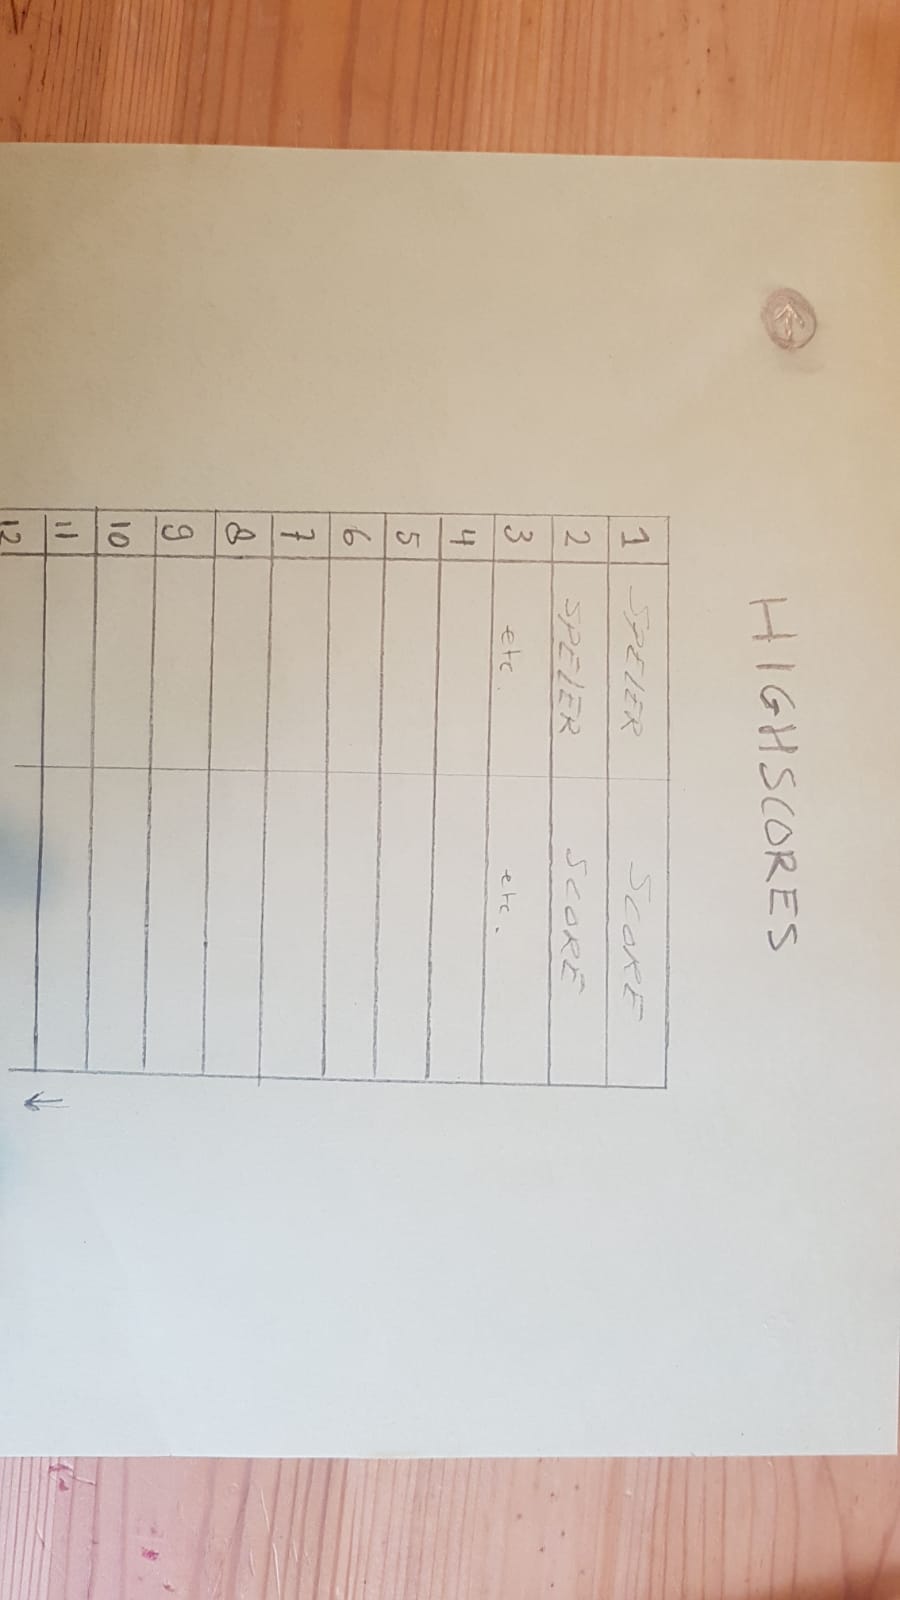 HIGHSCORES
1 SPELER SCORE
2 SPELER SCORE
3 etc. etc.
4
5
6
7
8
9
10
11
12